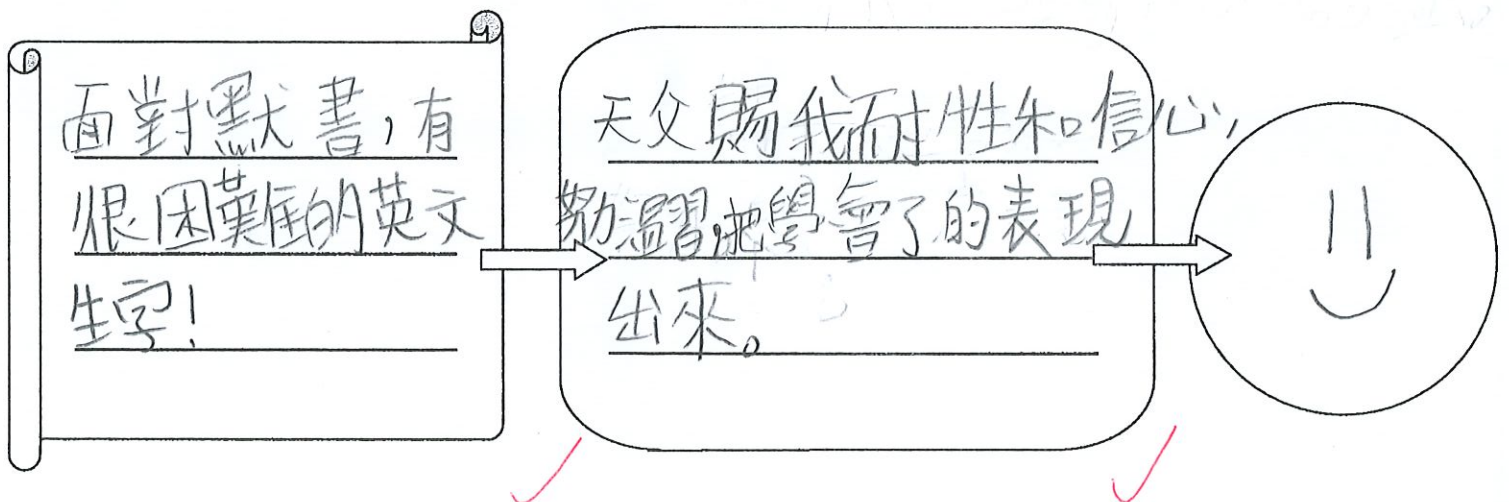 面對默書，有
很困難的英文
生字！
天父賜我耐性和信心，
努力溫習，把學會了的表現
出來。